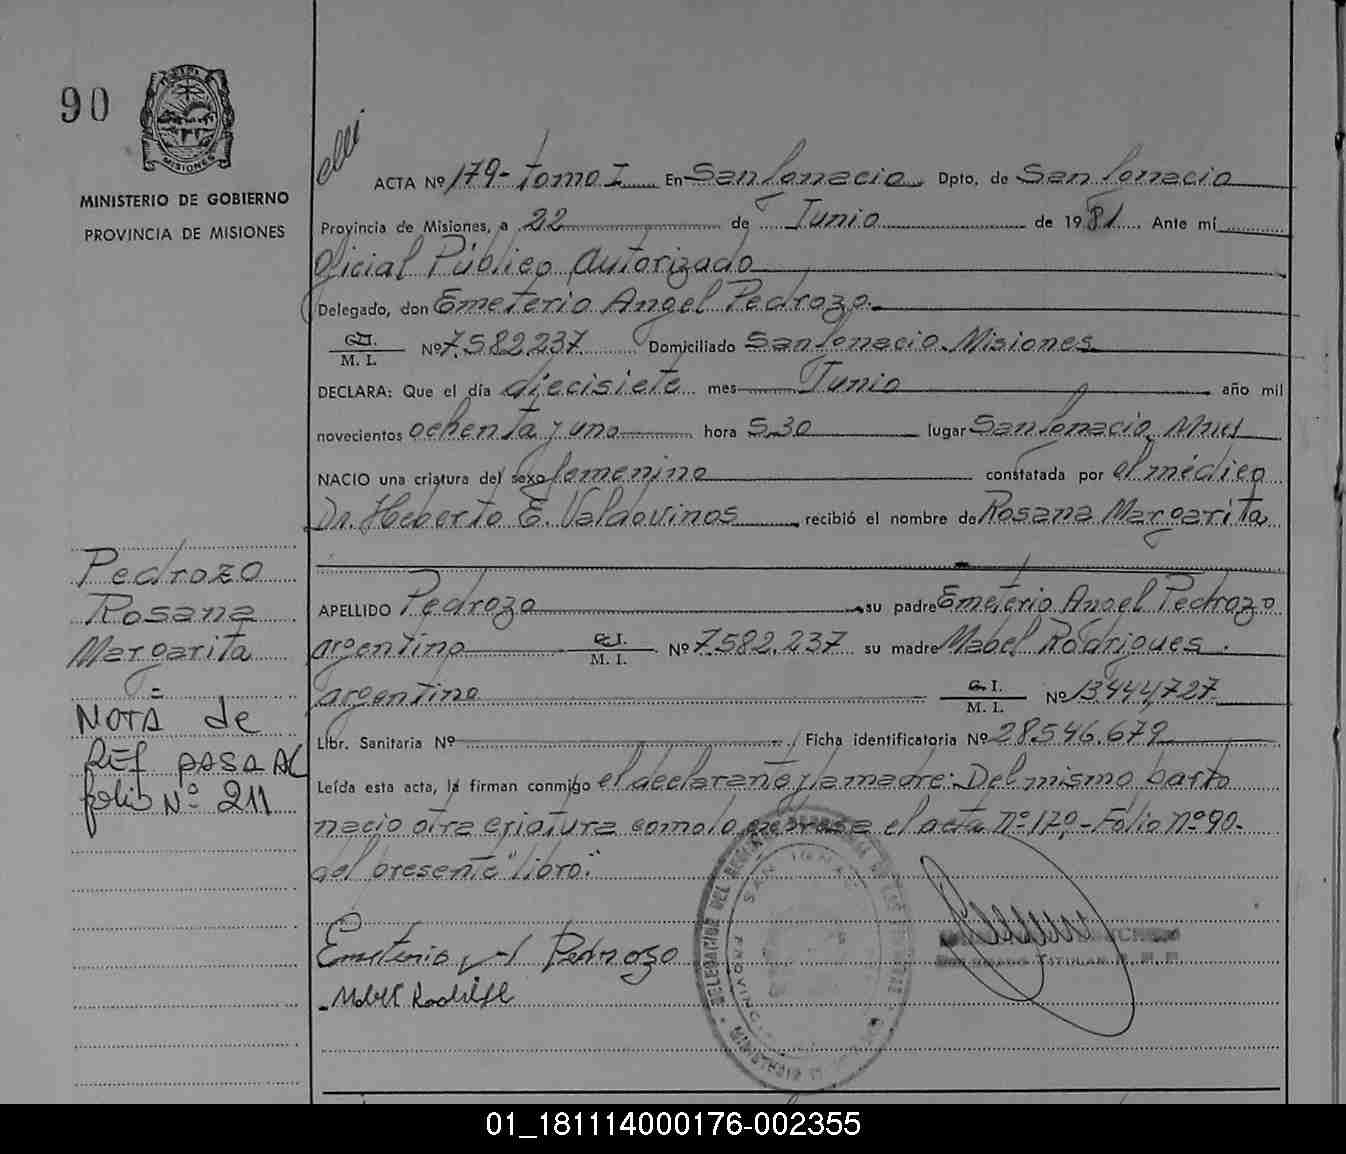 90
MISIONES
MINISTERIO DE GOBIERNO
PROVINCIA DE MISIONES
ACTA Nº 179- Tomo I En San Ignacio Dpto. de San Ignacio
Provincia de Misiones, a 22 de Junio de 1981 Ante mí
Oficial Público Autorizado
Delegado, don Emeterio Angel Pedrozo.
C.I.
M. I. Nº 7.582.237 Domiciliado San Ignacio. Misiones
DECLARA: Que el día diecisiete mes Junio año mil
novecientos ochenta y uno hora 5,30 lugar San Ignacio, Mnes
NACIO una criatura del sexo femenino constatada por el médico
Dr. Heberto E. Valdovinos recibió el nombre de Rosana Margarita
APELLIDO Pedrozo su padre Emeterio Angel Pedrozo
argentino C.I.
M. I. Nº 7.582.237 su madre Mabel Rodrigues.
argentina C.I.
M. I. Nº 13.444.727
Libr. Sanitaria Nº Ficha identificatoria Nº 28.546.679
Leída esta acta, la firman conmigo el declarante y la madre: Del mismo parto
nacio otra criatura como lo expresa el acta Nº 179,- Folio Nº 90-
del presente "libro".
Pedrozo
Rosana
Margarita
=
NOTA de
REF PASA AL
folio Nº 211
Emeterio A Pedrozo
DELEGACION DEL
SAN IGNACIO
PROVINCIA
MINISTERIO
TITULAR
01_181114000176-002355